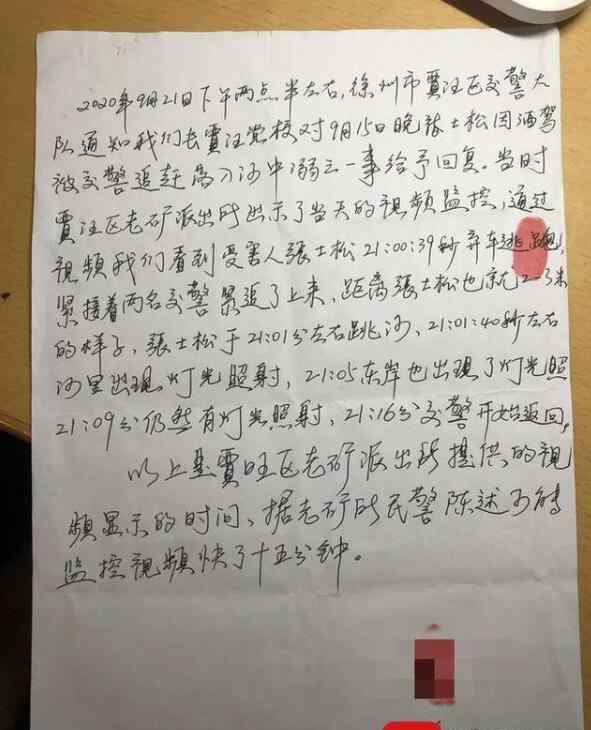 2020年9月21日下午两点半左右,徐州市贾汪区交警大
队通知我们去贾汪党校对9月15日晚张士松因酒驾
被交警追赶高入河中溺亡一事给予回复。当时
贾汪区老矿派出所出示了当天的视频监控,通过
视频我们看到受害人張士松21:00:39秒弃车逃跑,
紧接着两名交警紧追了上来,距离張士松也就2-3米
的样子,張士松于21:01分左右跳河,21:01:40秒左右
河里出现灯光照射,21:05东岸也出现了灯光照
21:09分仍然有灯光照射,21:16分交警开始返回,
以上是賈旺区老矿派出所提供的视
频显示的时间、据老矿所民警陈述
监控视频快了十五分钟。